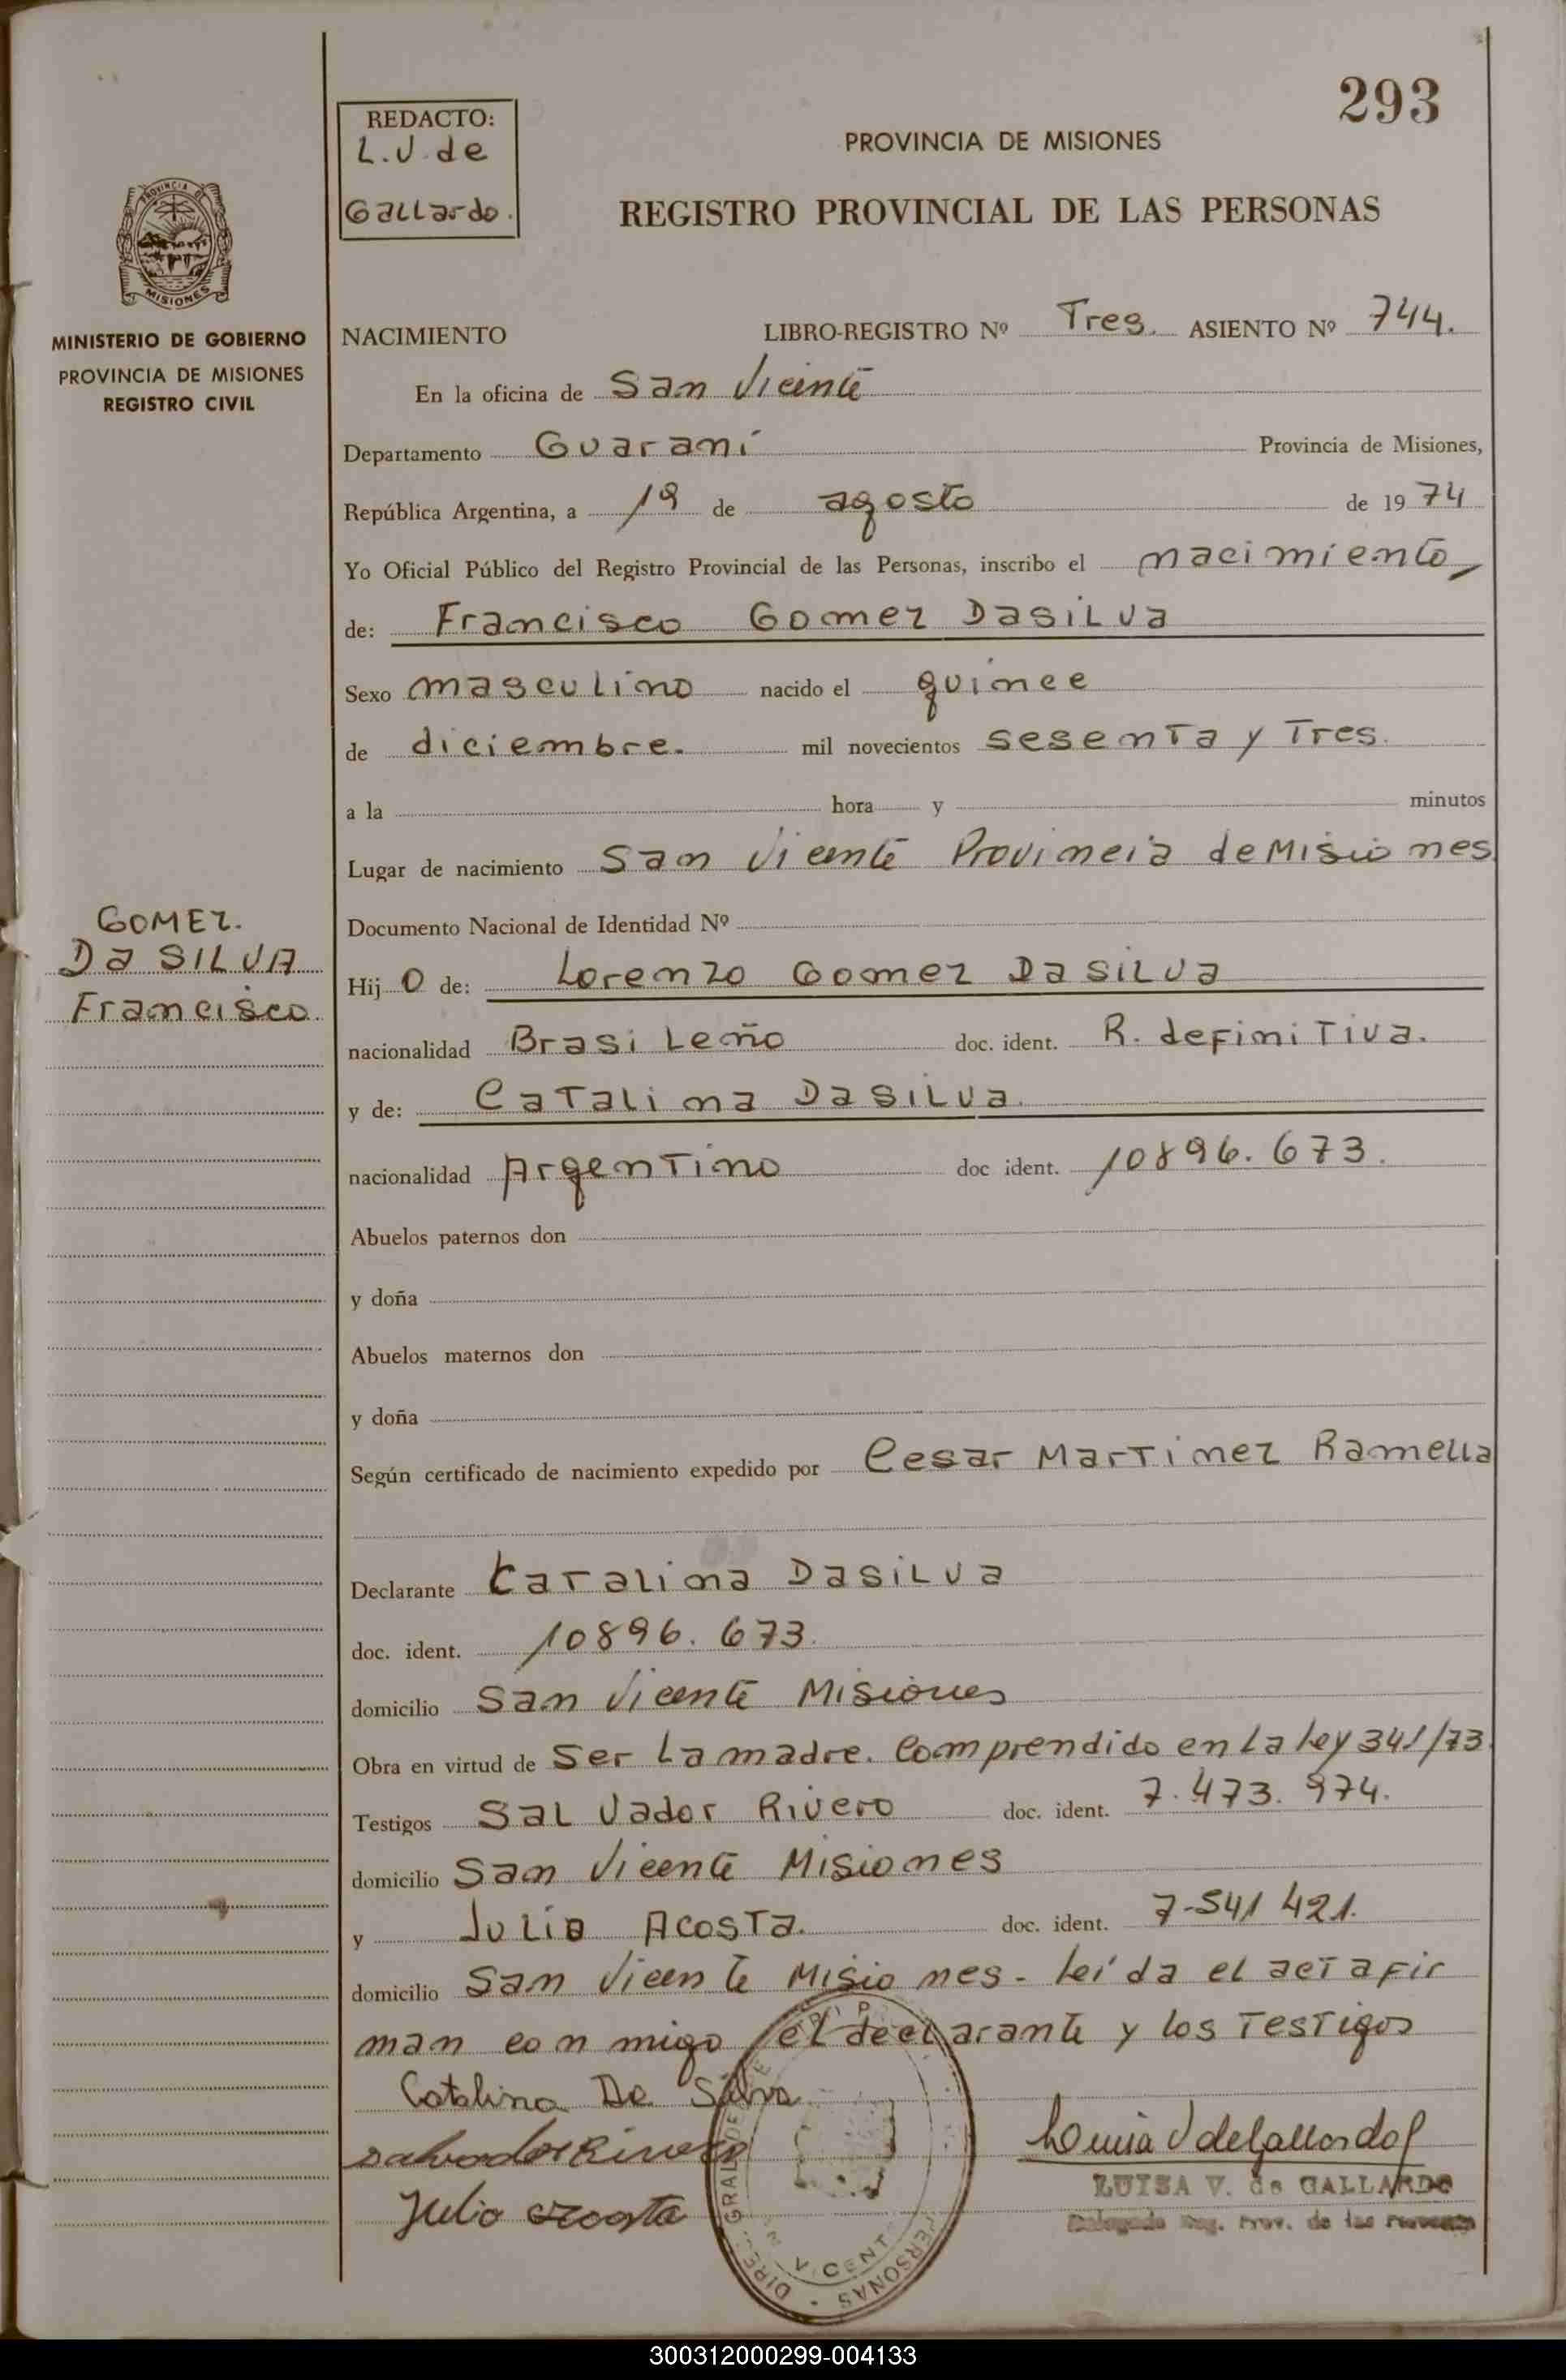 293
REDACTO:
L.V. de
Gallardo.
PROVINCIA DE MISIONES
REGISTRO PROVINCIAL DE LAS PERSONAS
PROVINCIA DE
MISIONES
MINISTERIO DE GOBIERNO
PROVINCIA DE MISIONES
REGISTRO CIVIL
NACIMIENTO LIBRO-REGISTRO Nº Tres. ASIENTO Nº 744.
En la oficina de San Vicente
Departamento Guaraní Provincia de Misiones,
República Argentina, a 19 de agosto de 1974
Yo Oficial Público del Registro Provincial de las Personas, inscribo el nacimiento
de: Francisco Gomez Dasilva
Sexo masculino nacido el quince
de diciembre. mil novecientos sesenta y Tres.
a la hora y minutos
Lugar de nacimiento San Vicente Provincia de Misiones
Documento Nacional de Identidad Nº
GOMEZ.
Da SILVA
Francisco.
Hijo de: Lorenzo Gomez Dasilva
nacionalidad Brasileño doc. ident. R. definitiva.
y de: Catalina Dasilva.
nacionalidad Argentino doc ident. 10896.673.
Abuelos paternos don
y doña
Abuelos maternos don
y doña
Según certificado de nacimiento expedido por Cesar Martinez Ramella
Declarante Catalina Dasilva
doc. ident. 10896.673.
domicilio San Vicente Misiones
Obra en virtud de ser la madre. Comprendido en la ley 341/73
Testigos Salvador Rivero doc. ident. 7.473.974.
domicilio San Vicente Misiones
y Julio Acosta. doc. ident. 7-541 421.
domicilio San Vicente Misiones - leída el acta fir
man conmigo el declarante y los Testigos
Catalina Da Silva
Salvador Rivero
Julio Acosta
Luisa V de Gallardo
LUISA V. de GALLARDO
Delegada Reg. Prov. de las Personas
VICENTE
PERSONAS
300312000299-004133